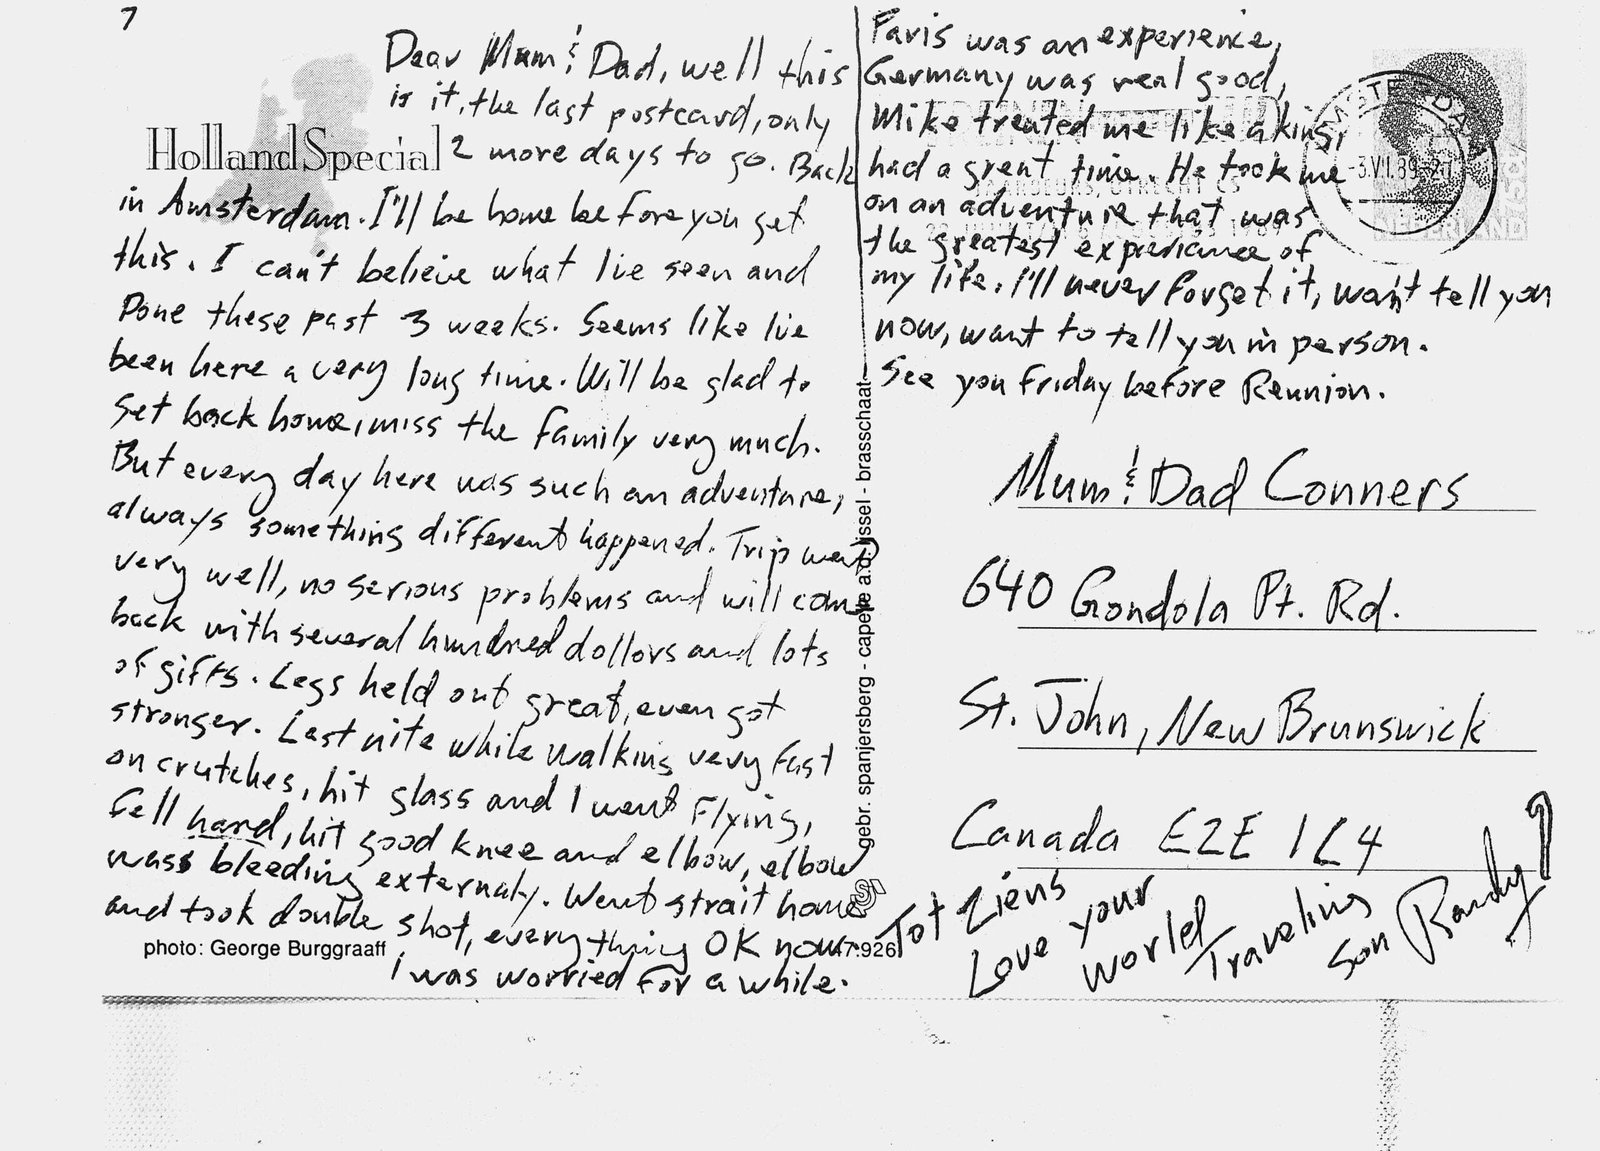 7
Dear Mum & Dad, well this
is it, the last postcard, only
Holland Special
2 more days to go. Back
in Amsterdam. I'll be home before you get
this. I can't believe what I've seen and
Done these past 3 weeks. Seems like I've
been here a very long time. Will be glad to
get back home, miss the family very much.
But every day here was such an adventure,
always something different happened. Trip went
very well, no serious problems and will come
back with several hundred dollors and lots
of gifts. Legs held out great, even got
stronger. Last nite while walking very fast
on crutches, hit glass and I went flying,
fell hard, hit good knee and elbow, elbow
was bleeding externaly. Went strait home
and took double shot, everything OK now
I was worried for a while.
photo: George Burggraaff
47.926
gebr. spanjersberg - capelle a.d. ijssel - brasschaat
Paris was an experience,
Germany was real good,
Mike treated me like a king,
had a great time. He took me
on an adventure that was
the greatest experience of
my life. I'll never forget it, wan't tell you
now, want to tell you in person.
See you Friday before Reunion.
AMSTERDAM
-3.VII.89.-20
NEDERLAND
Mum & Dad Conners
640 Gondola Pt. Rd.
St. John, New Brunswick
Canada E2E 1L4
Tot Ziens
Love your
world
Traveling
son Randy